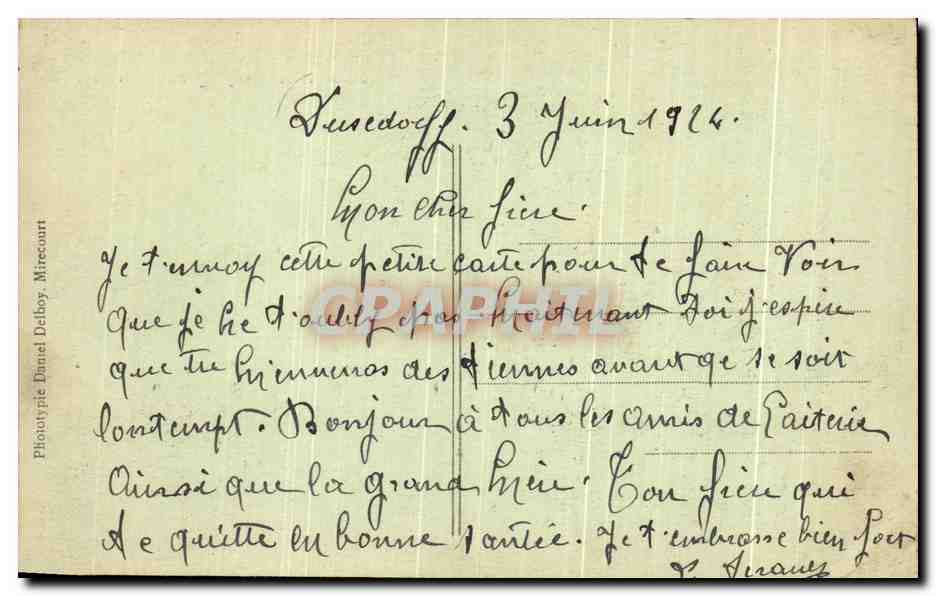 Dusedorff. 3 Juin 1924.
Mon cher frère.
Je t'envoy cette petite carte pour te faire Voir
que je ne t'oubly pas Maitnant toi j'espère
que tu m'enveras des tiennes avant qe se soit
lontempt. Bonjour à tous les amis de Laiterie
Ainsi que la grand Mère. Ton frère qui
te quitte en bonne santée. Je t'embrasse bien fort
Phototypie Daniel Delboy, Mirecourt
CPAPHIL